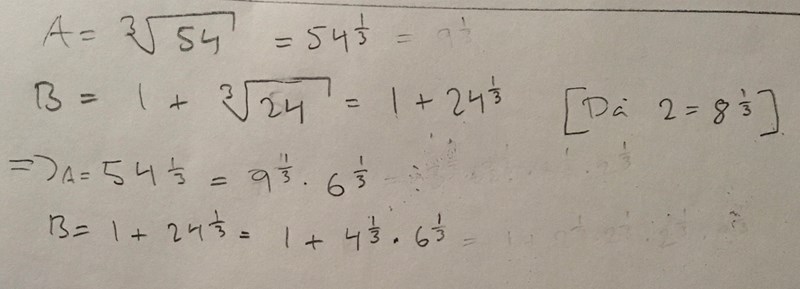 A = ∛54 = 54^(1/3) =
B = 1 + ∛24 = 1 + 24^(1/3) [Då 2 = 8^(1/3)]
=> A = 54^(1/3) = 9^(1/3) · 6^(1/3)
B = 1 + 24^(1/3) = 1 + 4^(1/3) · 6^(1/3)